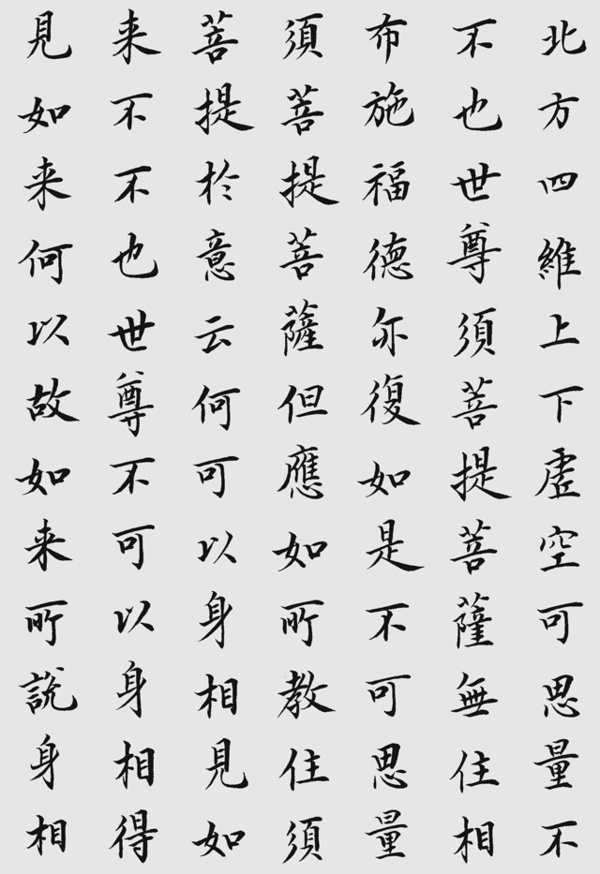 北方四維上下虛空可思量不
不也世尊須菩提菩薩無住相
布施福德亦復如是不可思量
須菩提菩薩但應如所教住須
菩提於意云何可以身相見如
来不不也世尊不可以身相得
見如来何以故如来所說身相